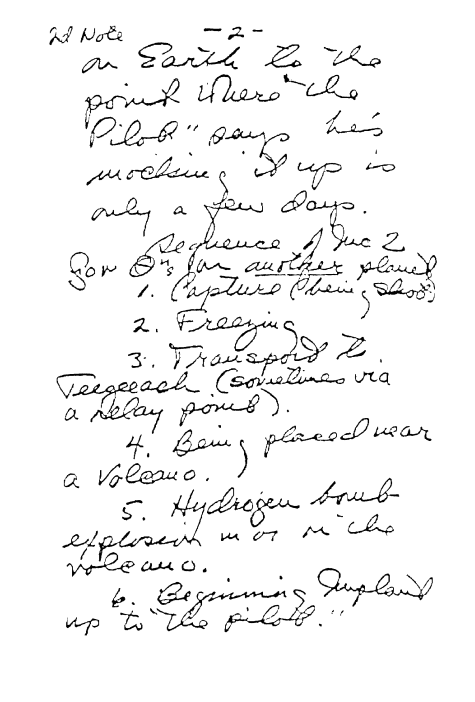 2d Note -2-
on Earth to the
point where "the
Pilot" says he's
mocking it up is
only a few days.
Sequence of Inc 2
for Θ's on another planet
1. Capture (being shot)
2. Freezing
3. Transport to
Teegeeach (sometimes via
a relay point).
4. Being placed near
a Volcano.
5. Hydrogen bomb
explosion in or on the
volcano.
6. Beginning Implant
up to "the pilot."